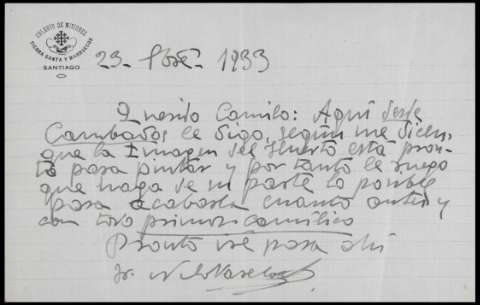 COLEGIO DE MISIONES
TIERRA SANTA Y MARRUECOS
SANTIAGO
23- 1933
Querido Camilo: Aquí desde
Cambados le digo, según me dicen,
que la Imagen del Huerto está pron-
ta para pintar y por tanto le ruego
que haga de su parte lo posible
para acabarla cuanto antes y
con todo primor camílico
Pronto iré para ahí
Fr.